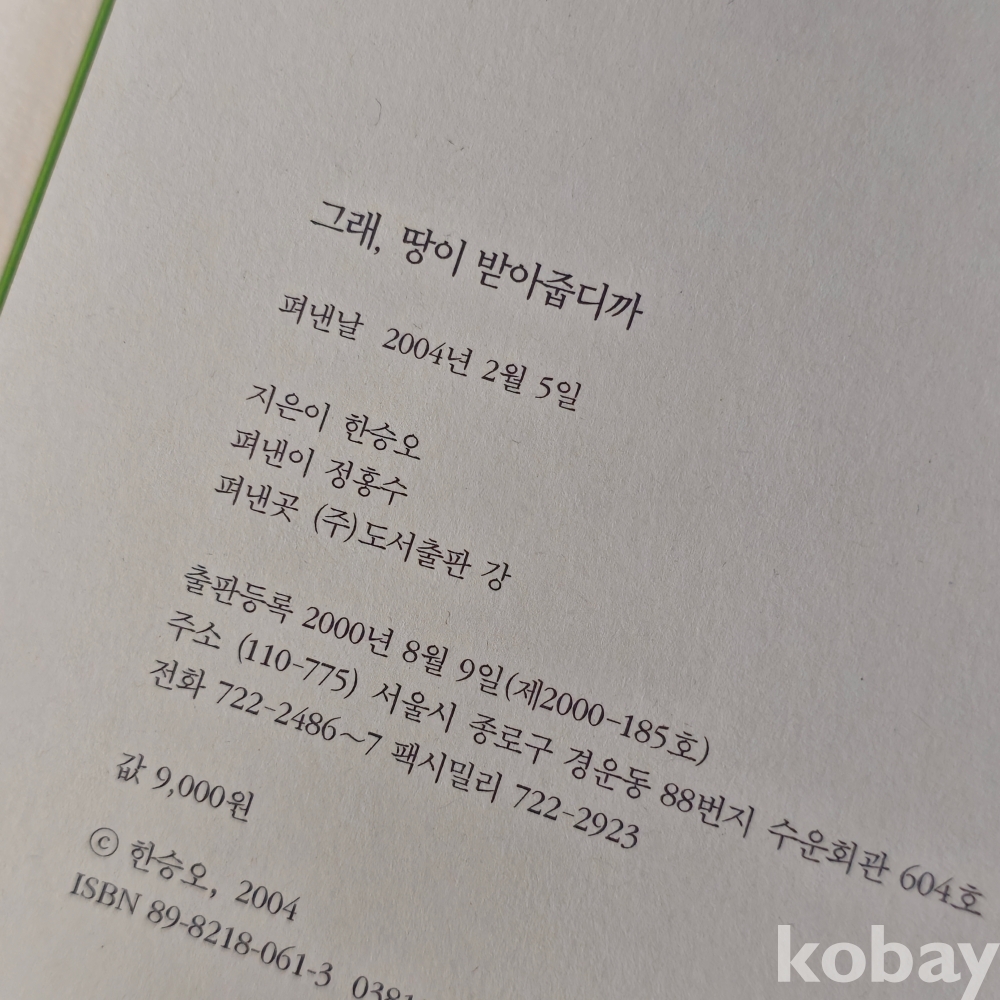 그래, 땅이 받아줍디까
펴낸날 2004년 2월 5일
지은이 한승오
펴낸이 정홍수
펴낸곳 (주)도서출판 강
출판등록 2000년 8월 9일(제2000-185호)
주소 (110-775) 서울시 종로구 경운동 88번지 수운회관 604호
전화 722-2486~7 팩시밀리 722-2923
값 9,000원
ⓒ 한승오, 2004
ISBN 89-8218-061-3
kobay